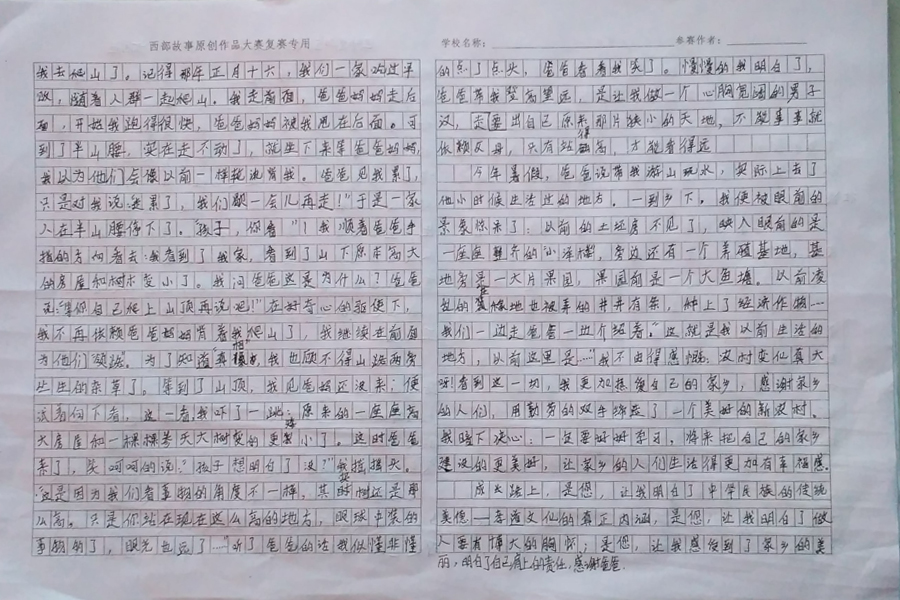 西部故事原创作品大赛复赛专用
学校名称：
参赛作者：
我去爬山了。记得那年正月十六，我们一家吃过早
饭，随着人群一起爬山。我走前面，爸爸妈妈走后
面，开始我跑得很快，爸爸妈妈被我甩在后面。可
到了半山腰，实在走不动了，就坐下来等爸爸妈妈，
我以为他们会像以前一样轮流背我。爸爸见我累了，
只是对我说：累了，我们歇一会儿再走！"于是一家
人在半山腰停下了。"孩子，你看"！我顺着爸爸手
指的方向看去：我看到了我家，看到了山下原本高大
的房屋和树木变小了。我问爸爸这是为什么？爸爸
说："等你自己爬上山顶再说吧！"在好奇心的驱使下，
我不再依赖爸爸妈妈背着我爬山了，我继续在前面
为他们领路。为了知道真相，我也顾不得山路两旁
生生的杂草了。等到了山顶，我见爸妈还没来，便
试着向下看，这一看，我吓了一跳：原来的一座座高
大房屋和一棵棵参天大树变的更加小了。这时爸爸
来了，笑呵呵的说："孩子想明白了没？"我摇摇头。
"这是因为我们看事物的角度不一样，其实树还是那
么高。只是你站在现在这么高的地方，眼球中装的
事物的了，眼光也远了……"听了爸爸的话我似懂非懂
的点了点头，爸爸看着我笑了。慢慢的我明白了，
爸爸带我登高望远，是让我做一个心胸宽阔的男子
汉，走要出自己原来那片狭小的天地，不能事事就
依赖父母，只有站得高，才能看得远
今年暑假，爸爸说带我游山玩水，实际上去了
他小时候生活过的地方。一到乡下，我便被眼前的
景象惊呆了：以前的土坯房不见了，映入眼前的是
一座座整齐的小洋楼，旁边还有一个养殖基地，基
地旁是一大片果园，果园前是一个大鱼塘。以前凌
乱的地也被弄的井井有条，种上了经济作物……
我们一边走爸爸一边介绍着："这就是我以前生活的
地方，以前这里是……"我不由得感慨：农村变化真大
呀！看到这一切，我更加热爱自己的家乡，感谢家乡
的人们，用勤劳的双手缔造了一个美好的新农村。
我暗下决心：一定要好好学习，将来把自己的家乡
建设的更美好，让家乡的人们生活得更加有幸福感。
成长路上，是您，让我明白了中华民族的传统
美德—孝道文化的真正内涵，是您，让我明白了做
人要有博大的胸怀；是您，让我感受到了家乡的美
丽，明白了自己肩上的责任，感谢爸爸。